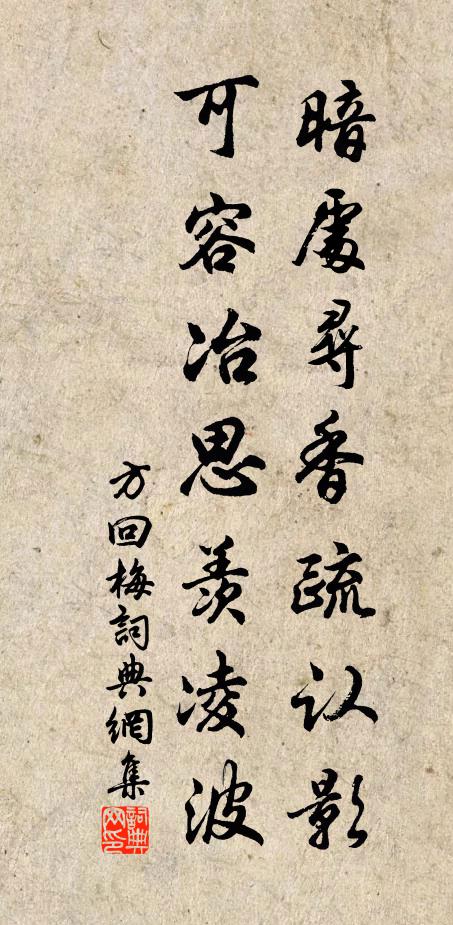 暗處尋香疏认影
可容冶思羨凌波
方回梅詞典網集
詞典网印